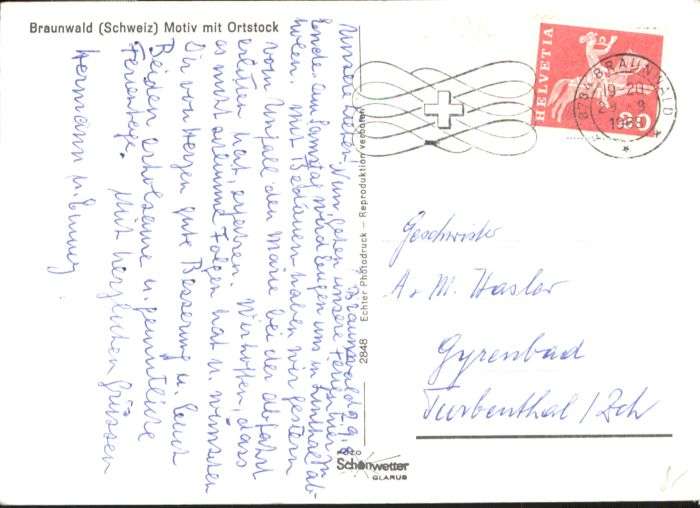 Braunwald (Schweiz) Motiv mit Ortstock
Braunwald 2.9.
Unsere Lieben! Nun gehen unsere Ferien hier zu
Ende. Am Samstag wird Eugen uns in Linthal ab-
holen. Mit Bedauern haben wir gestern
vom Unfall den Marie bei der Abfahrt
erlitten hat, erfahren. Wir hoffen, dass
es nicht schlimme Folgen hat u. wünschen
Dir von Herzen gute Besserung u. Euch
Beiden erholsame u. gemütliche
Ferientage. Mit herzlichen Grüssen
Hermann u. Emmy
2848 Echter Photodruck – Reproduktion verboten
Schönwetter
GLARUS
HELVETIA
8784 BRAUNWALD
19-20
Geschwister
A. + M. Hasler
Gyrenbad
Turbenthal / Zch